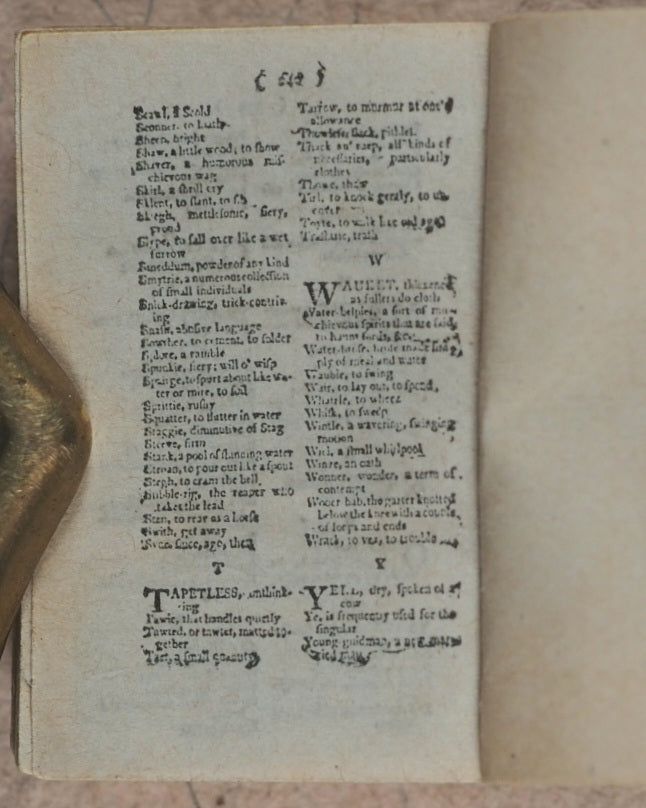 Scawl, a Scold
Sconner, to loath
Sheen, bright
Shaw, a little wood; to show
Shaver, a humorous mis-
chievous wag
Skirl, a shrill cry
Sklent, to slant, to
Skiegh, mettlesome, fiery,
proud
Slype, to fall over like a wet
furrow
Smeddum, powder of any kind
Smytrie, a numerous collection
of small individuals
Snick-drawing, trick-contriv-
ing
Snash, abusive language
Sowther, to cement, to solder
a ramble
Spunkie, fiery; will o' wisp
Spairge, to sport about like wa-
ter or mire, to soil
Sprittie, rushy
Squatter, to flutter in water
Staggie, diminutive of Stag
Steeve, firm
Stank, a pool of standing water
Stroan, to pour out like a spout
Stegh, to cram the bell
Stibble-rig, the reaper who
takes the lead
Sten, to rear as a horse
Swith, get away
Syne, since, ago, then
T
TAPETLESS, unthink-
ing
Tawie, that handles quietly
Tawted, or tawtet, matted to-
gether
a small quantity
Tarrow, to murmur at one's
allowance
Thowless, slack, pithless
Thack an' raep, all kinds of
necessaries, particularly
clothes
Thowe, thaw
Tirl, to knock gently, to un-
cover
Toyte, to walk like old age
Trashtrie, trash
W
WAUKET, thickened
as fullers do cloth
Water-kelpies, a sort of mis-
chievous spirits that are said
to haunt fords, &c.
Water-brose, brose made
ply of meal and water
Wauble, to swing
Wair, to lay out, to spend
Whaizle, to wheez
Whisk, to sweep
Wintle, a wavering, swinging
motion
Wiel, a small whirlpool
Winze, an oath
Wonner, wonder, a term of
contempt
Wooer bab, the garter knotted
below the knee with a couple
of loops and ends
Wrack, to vex, to trouble
Y
YELL, dry, spoken of a
cow
Ye, is frequently used for the
singular
Young-guidman, a new
ried man